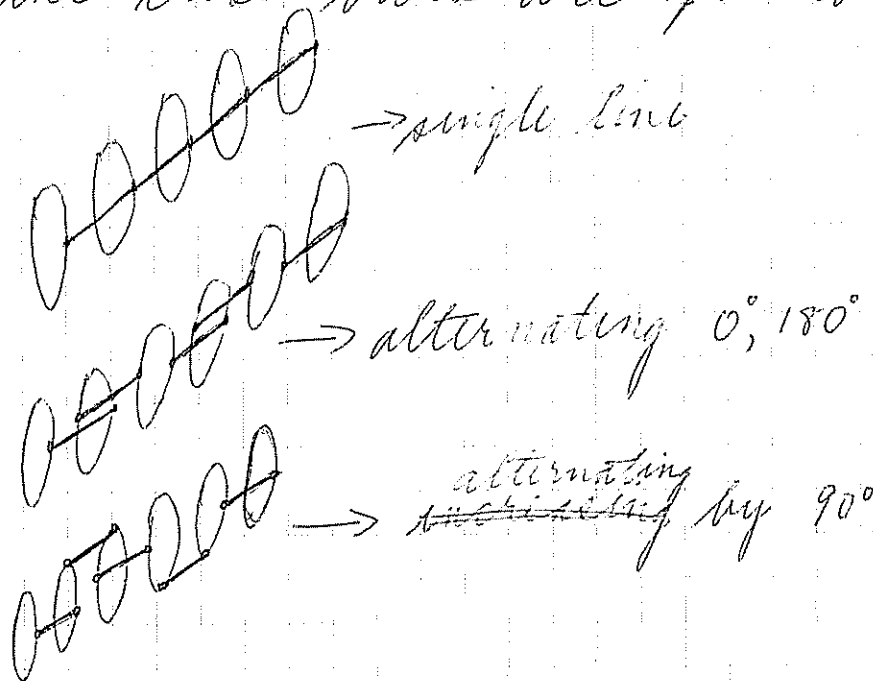 → single line
→ alternating 0°, 180°
alternating
→ ~~increasing~~ by 90°